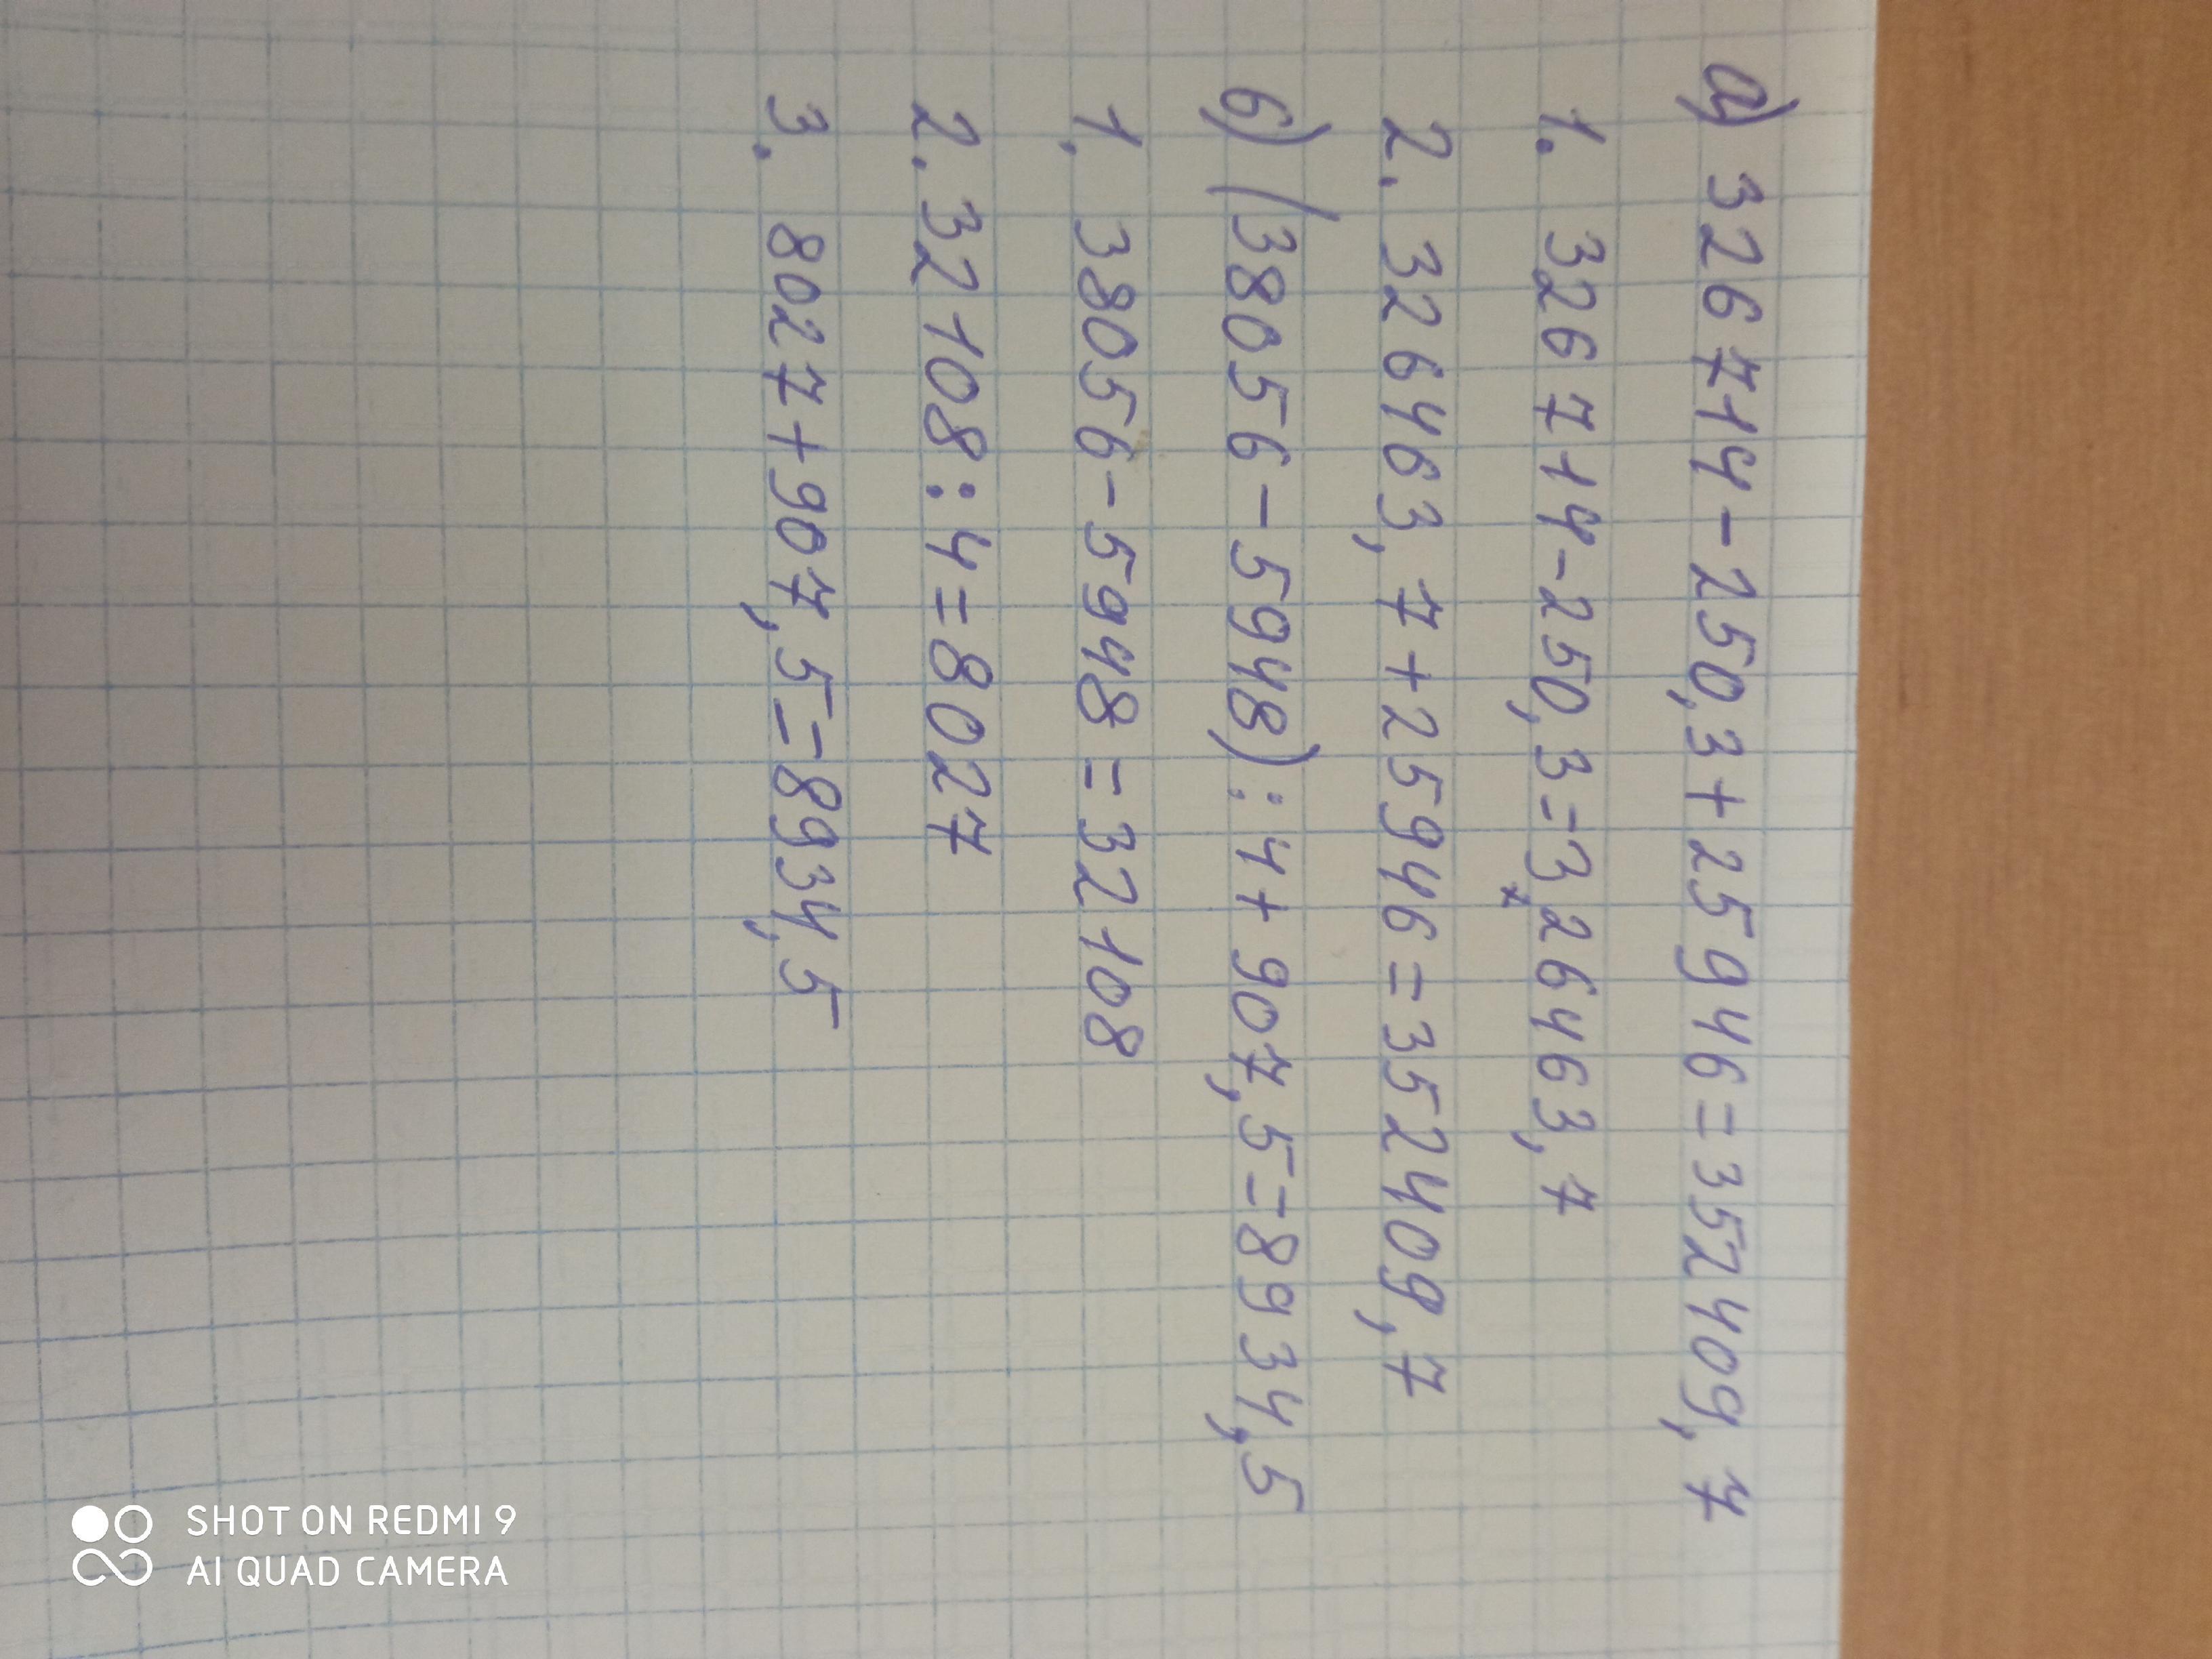 а) 326714-250,3+25946=352409,7
1. 326714-250,3=326463,7
2. 326463,7+25946=352409,7
б) (38056-5948):4+907,5=8934,5
1. 38056-5948=32108
2. 32108:4=8027
3. 8027+907,5=8934,5
SHOT ON REDMI 9
AI QUAD CAMERA